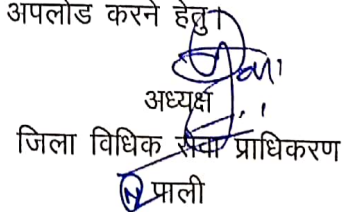 अपलोड करने हेतु।
अध्यक्ष
जिला विधिक सेवा प्राधिकरण
पाली